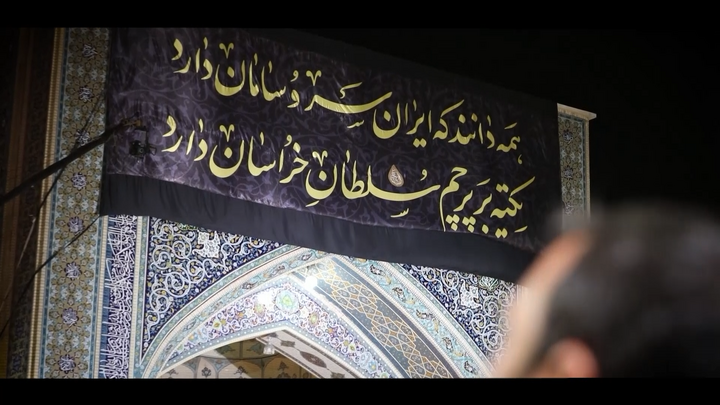 همه دانند که ایران سر و سامان دارد
تکیه بر پرچم سلطان خراسان دارد